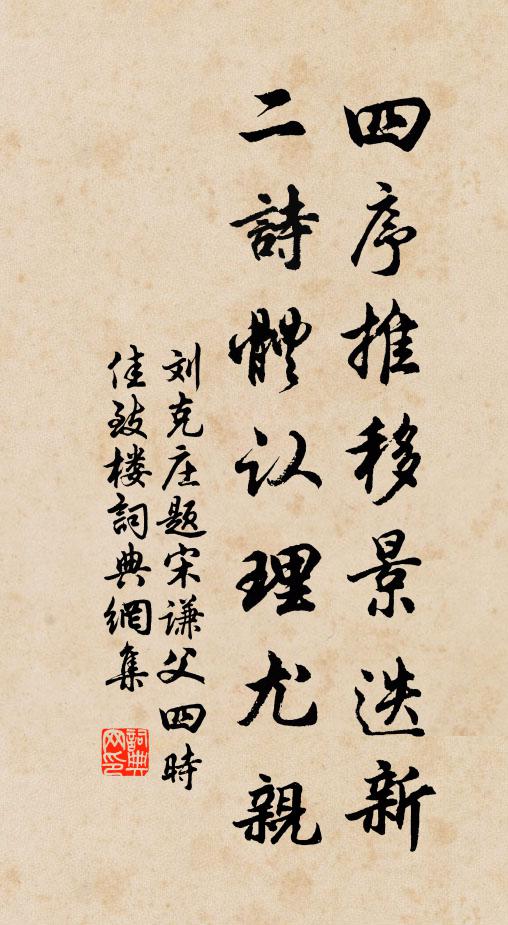 四序推移景迭新
二詩體认理尤親
刘克庄题宋谦父四時
佳致楼詞典網集
詞典网印